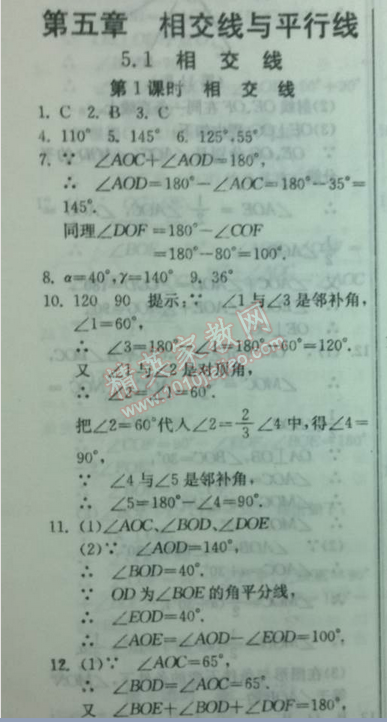 第五章 相交线与平行线
5.1 相交线
第1课时 相交线
1. C 2. B 3. C
4. 110° 5. 145° 6. 125°,55°
7. ∵ ∠AOC+∠AOD=180°,
∴ ∠AOD=180°-∠AOC=180°-35°=
145°.
同理∠DOF=180°-∠COF
=180°-80°=100°.
8. α=40°,γ=140° 9. 36°
10. 120 90 提示:∵ ∠1与∠3是邻补角,
∠1=60°,
∴ ∠3=180°-∠1=180°-60°=120°.
又 ∠1与∠2是对顶角,
∴ ∠2=∠1=60°.
把∠2=60°代入∠2=2/3∠4中,得∠4=
90°,
∵ ∠4与∠5是邻补角,
∴ ∠5=180°-∠4=90°.
11. (1)∠AOC、∠BOD、∠DOE
(2)∵ ∠AOD=140°,
∴ ∠BOD=40°.
∵ OD为∠BOE的角平分线,
∴ ∠EOD=40°.
∴ ∠AOE=∠AOD-∠EOD=100°.
12. (1)∵ ∠AOC=65°,
∴ ∠BOD=∠AOC=65°.
又 ∠BOE+∠BOD+∠DOF=180°,
精英家教网
www.1010jiajiao.com